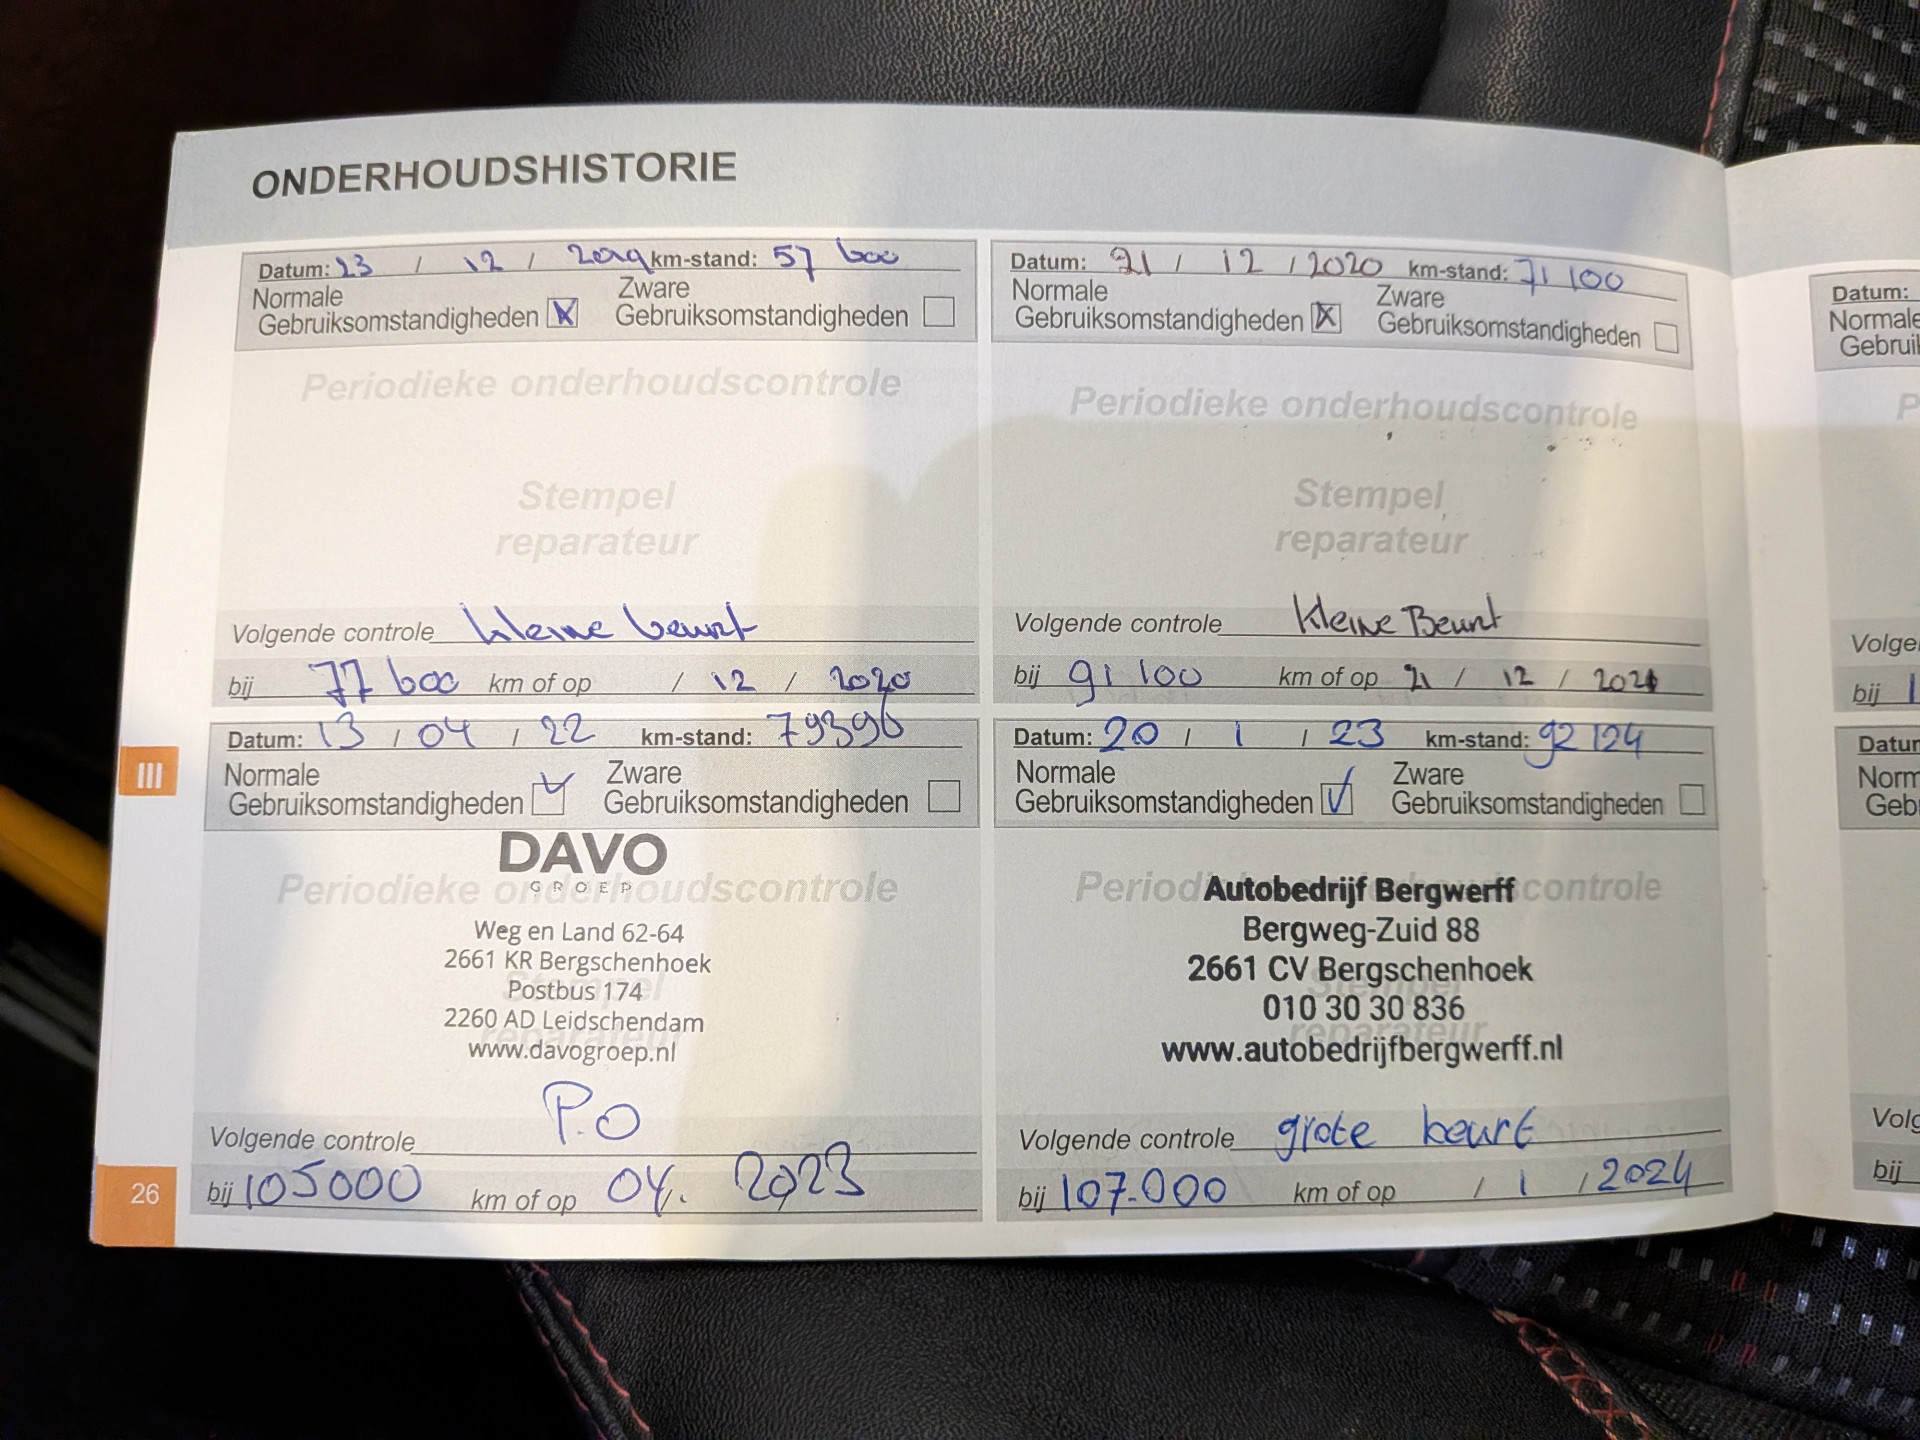 ONDERHOUDSHISTORIE
Datum: 23 / 12 / 2019 km-stand: 57 600
Normale
Gebruiksomstandigheden X
Zware
Gebruiksomstandigheden
Periodieke onderhoudscontrole
Stempel
reparateur
Volgende controle kleine beurt
bij 77 600 km of op / 12 / 2020
Datum: 21 / 12 / 2020 km-stand: 71 100
Normale
Gebruiksomstandigheden X
Zware
Gebruiksomstandigheden
Periodieke onderhoudscontrole
Stempel
reparateur
Volgende controle kleine Beurt
bij 91 100 km of op 21 / 12 / 2021
Datum: 13 / 04 / 22 km-stand: 79396
Normale
Gebruiksomstandigheden
Zware
Gebruiksomstandigheden
DAVO
GROEP
Periodieke onderhoudscontrole
Weg en Land 62-64
2661 KR Bergschenhoek
Stempel
Postbus 174
2260 AD Leidschendam
reparateur
www.davogroep.nl
P.O
Volgende controle
bij 105000 km of op 04. 2023
Datum: 20 / 1 / 23 km-stand: 92 124
Normale
Gebruiksomstandigheden
Zware
Gebruiksomstandigheden
Periodieke onderhoudscontrole
Autobedrijf Bergwerff
Bergweg-Zuid 88
2661 CV Bergschenhoek
Stempel
010 30 30 836
reparateur
www.autobedrijfbergwerff.nl
Volgende controle grote beurt
bij 107.000 km of op / 1 / 2024
III
26
Datum:
Normale
Gebruik
P
Volge
bij 1
Datum
Norm
Geb
Volg
bij